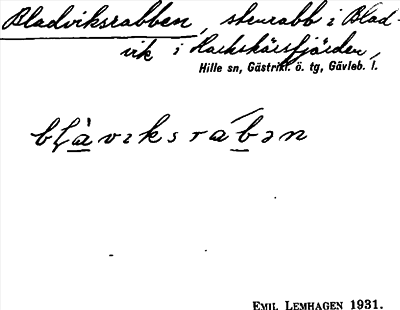 Bladviksrabben, stenrabb i Blad-
vik i Harkskärsfjärden,
Hille sn, Gästrikl. ö. tg, Gävleb. l.
blàviksrábən
EMIL LEMHAGEN 1931.